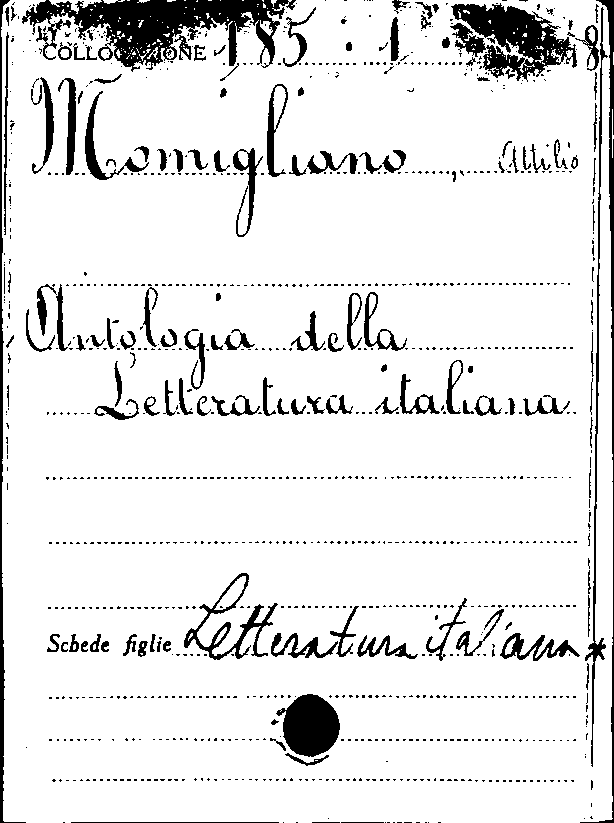 COLLOCAZIONE 185 : 1 · 18
Momigliano, Attilio
Antologia della
Letteratura italiana
Schede figlie Letteratura italiana *